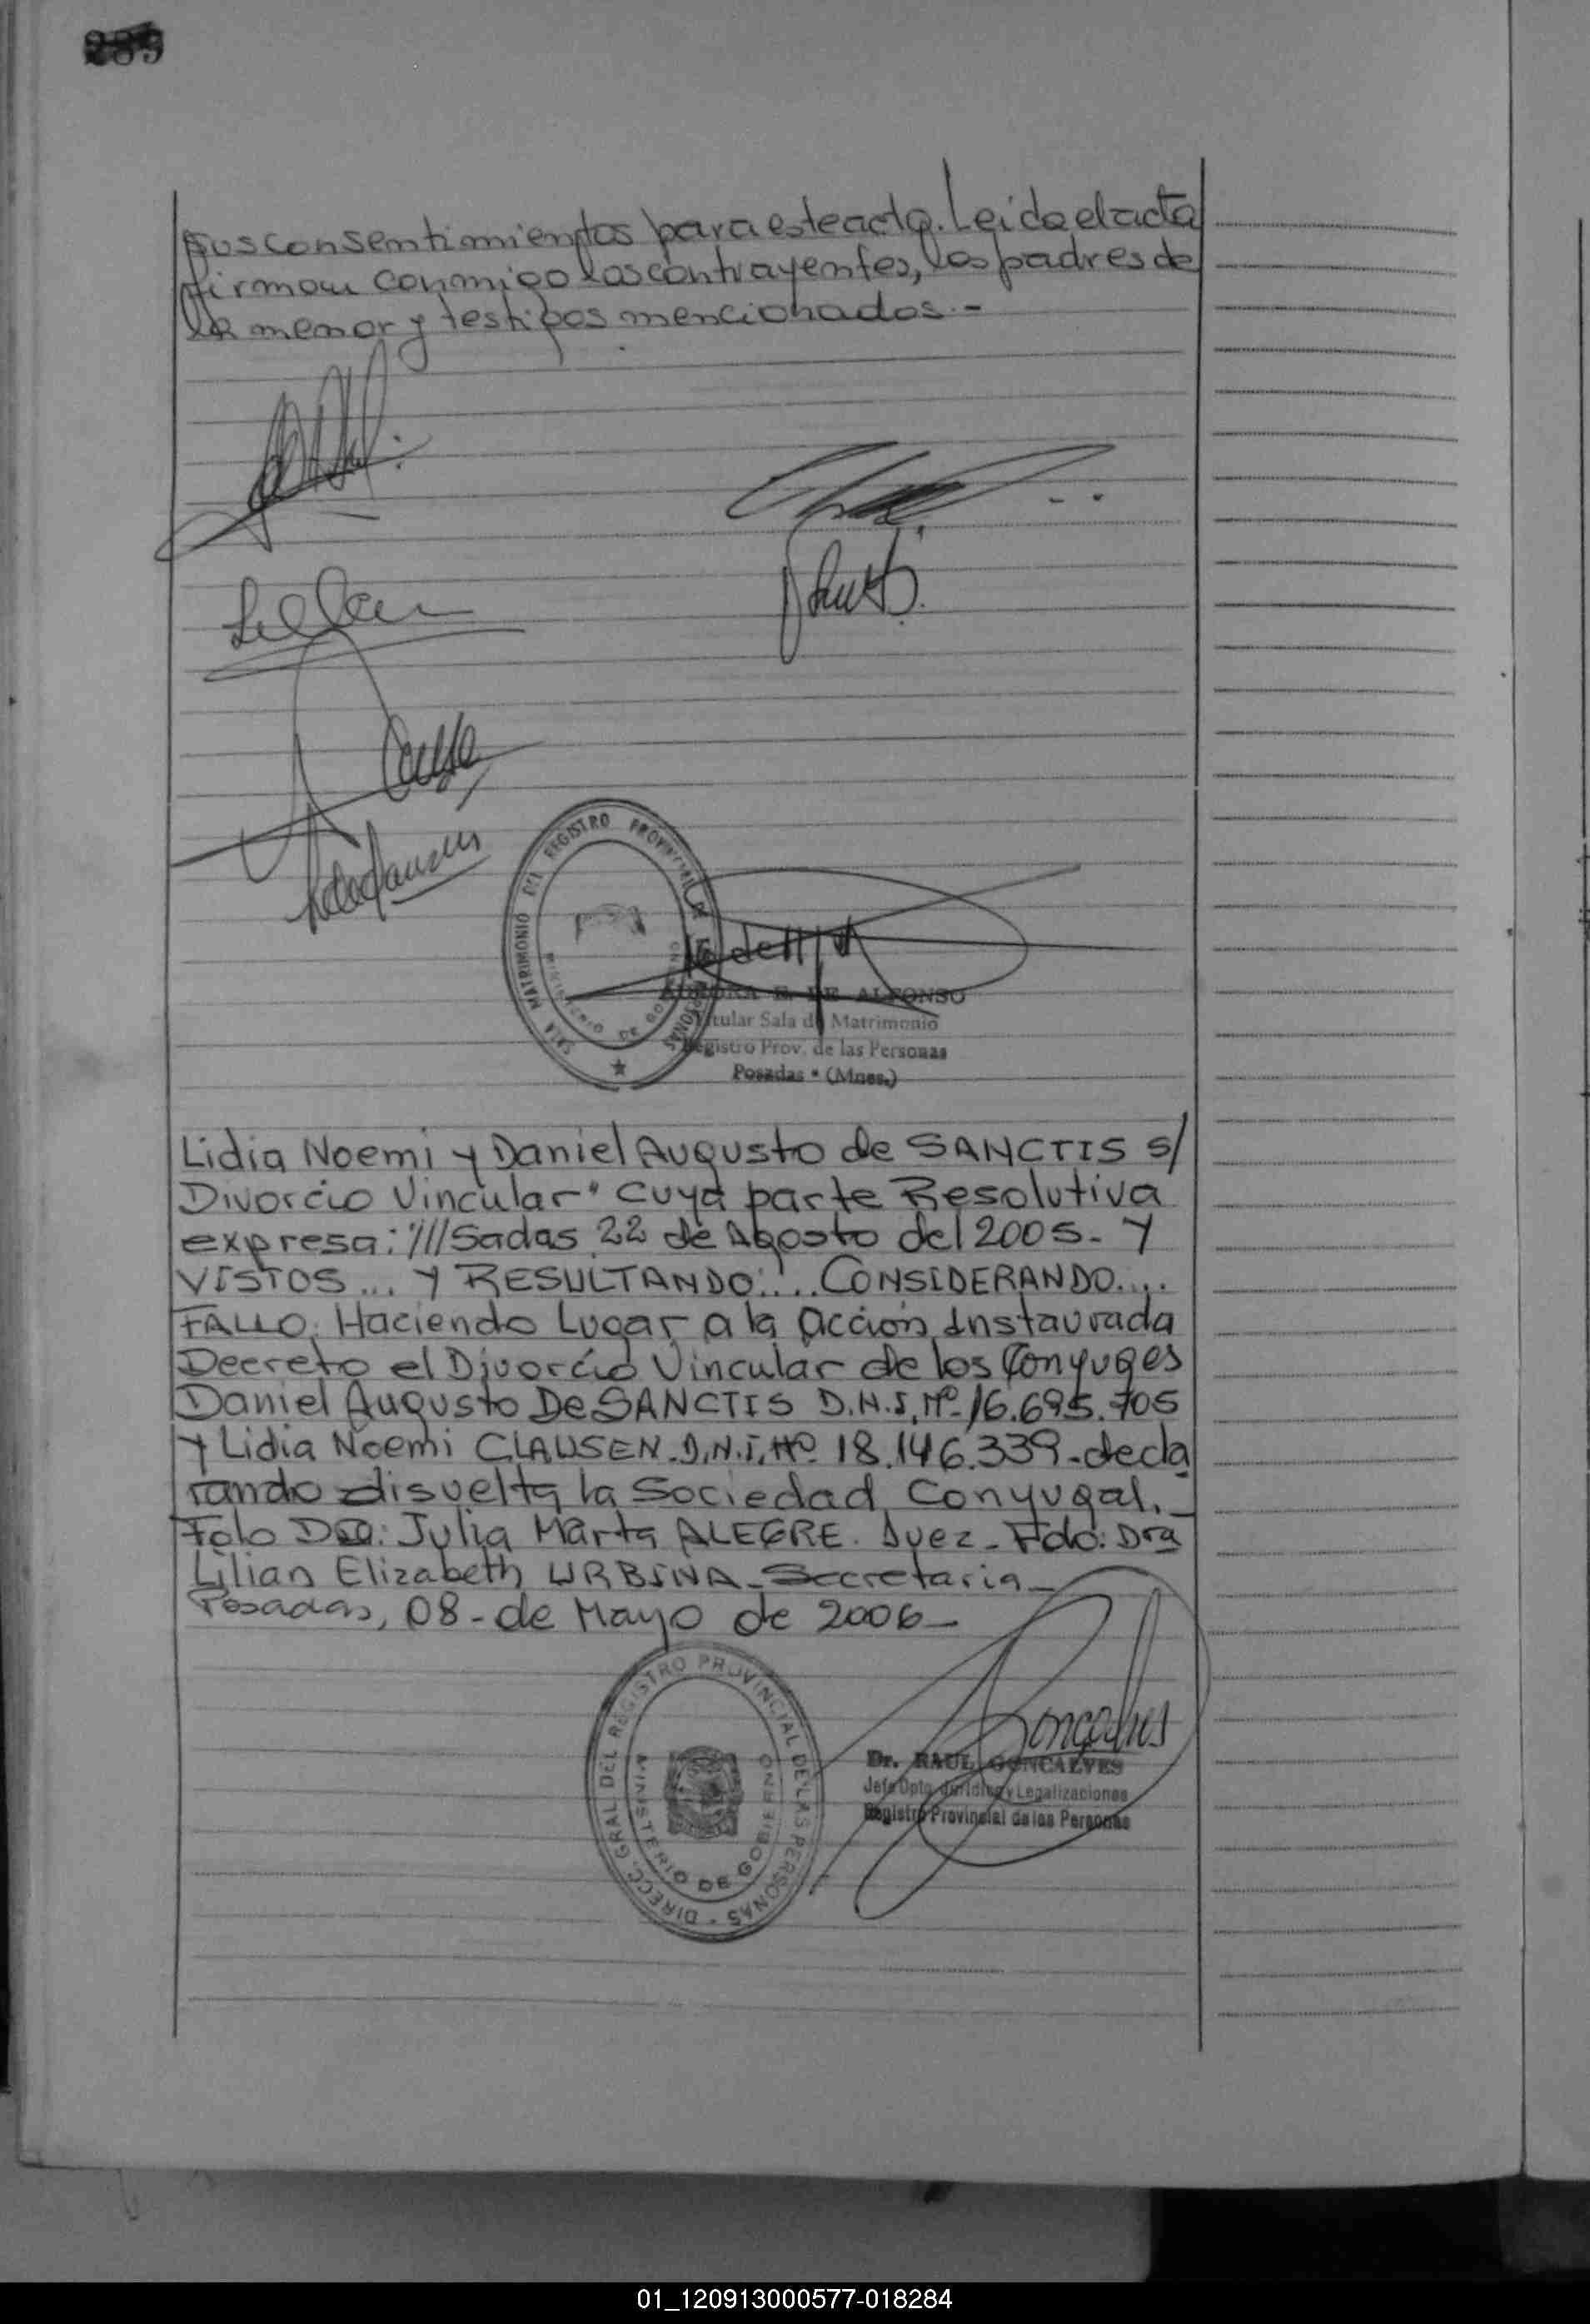 289
sus consentimientos para este acto. Leida el acta
firman conmigo los contrayentes, los padres de
la menor y testigos mencionados.-
SALA MATRIMONIO DEL REGISTRO PROVINCIAL DE LAS PERSONAS
MINISTERIO DE GOBIERNO
E. DE ALFONSO
Titular Sala de Matrimonio
Registro Prov. de las Personas
Posadas * (Mnes.)
Lidia Noemi y Daniel Augusto de SANCTIS s/
Divorcio Vincular" cuya parte Resolutiva
expresa: "///Sadas 22 de Agosto del 2005- Y
VISTOS... Y RESULTANDO:.... CONSIDERANDO....
FALLO: Haciendo Lugar a la acción Instaurada
Decreto el Divorcio Vincular de los Conyuges
Daniel Augusto De SANCTIS D.N.I. Nº 16.695.705
Y Lidia Noemi CLAUSEN-D.N.I. Nº 18.146.339-decla
rando disuelta la Sociedad Conyugal.-
Fdo Dra: Julia Marta ALEGRE. Juez-Fdo: Dra
Lilian Elizabeth URBINA-Secretaria-
Posadas, 08-de Mayo de 2006-
DIRECC. GRAL DEL REGISTRO PROVINCIAL DE LAS PERSONAS -
MINISTERIO DE GOBIERNO
Goncalves
Dr. RAUL GONCALVES
Jefe Dpto. Jurídico y Legalizaciones
Registro Provincial de las Personas
01_120913000577-018284